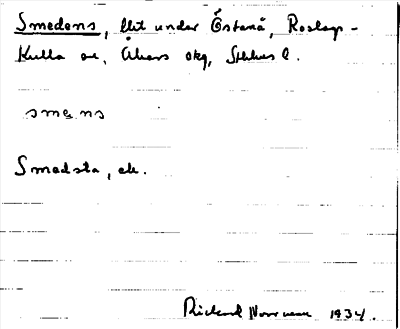 Smedens, lht under Östanå, Roslags-
Kulla sn, Åkers skg, Sthlms l.
smens
Smedsta, ek.
Rickard 1934.